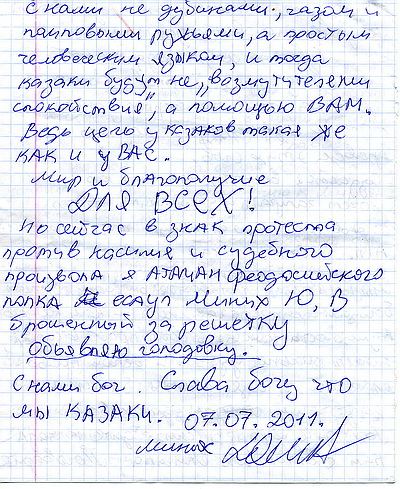 с нами не дубинами, газом и
помповыми ружьями, а простым
человеческим языком, и тогда
казаки будут не „возмутителями
спокойствия", а помощью ВАМ.
Ведь цель у казаков такая же
как и у ВАС.
Мир и благополучие
ДЛЯ ВСЕХ!
Но сейчас в знак протеста
против насилия и судебного
произвола я АТАМАН феодосийского
полка есаул Миних Ю, В
брошенный за решётку
объявляю голодовку.
С нами бог. Слава богу что
мы КАЗАКИ. 07.07.2011.
Миних